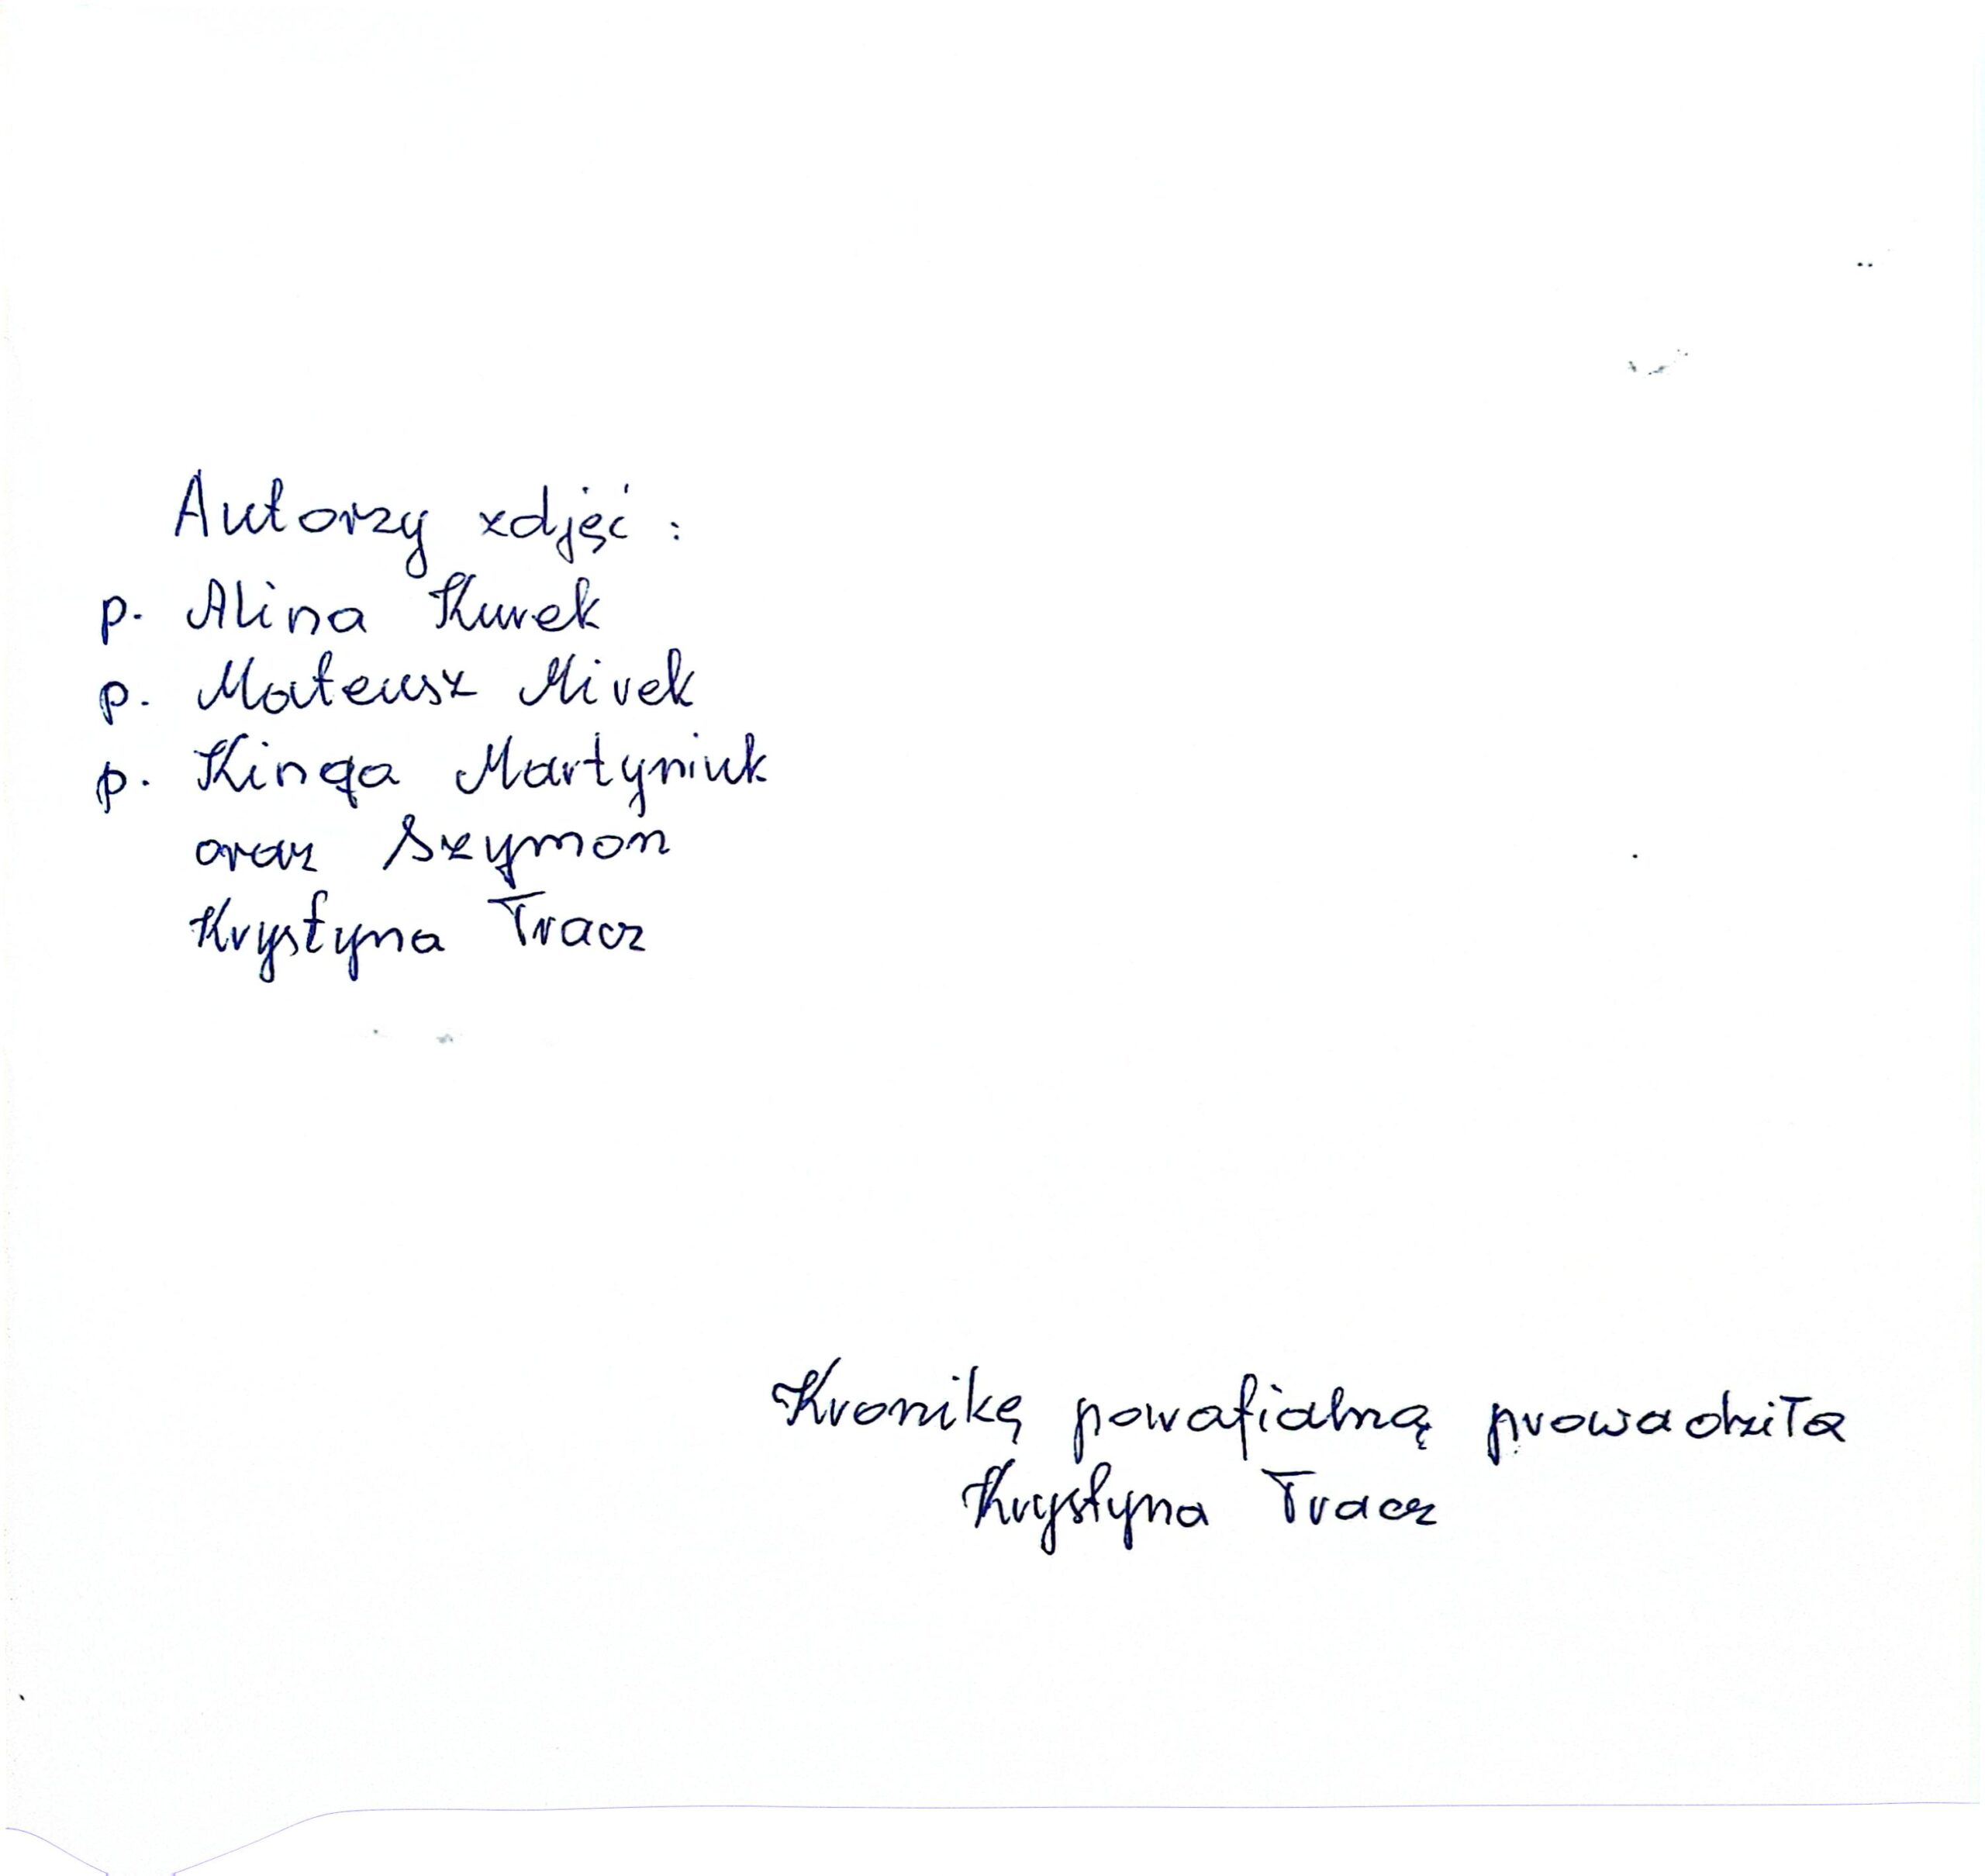 Autorzy zdjęć :
p. Alina Kurek
p. Mateusz Mirek
p. Kinga Martyniuk
oraz Szymon
Krystyna Tracz
Kronikę parafialną prowadziła
Krystyna Tracz